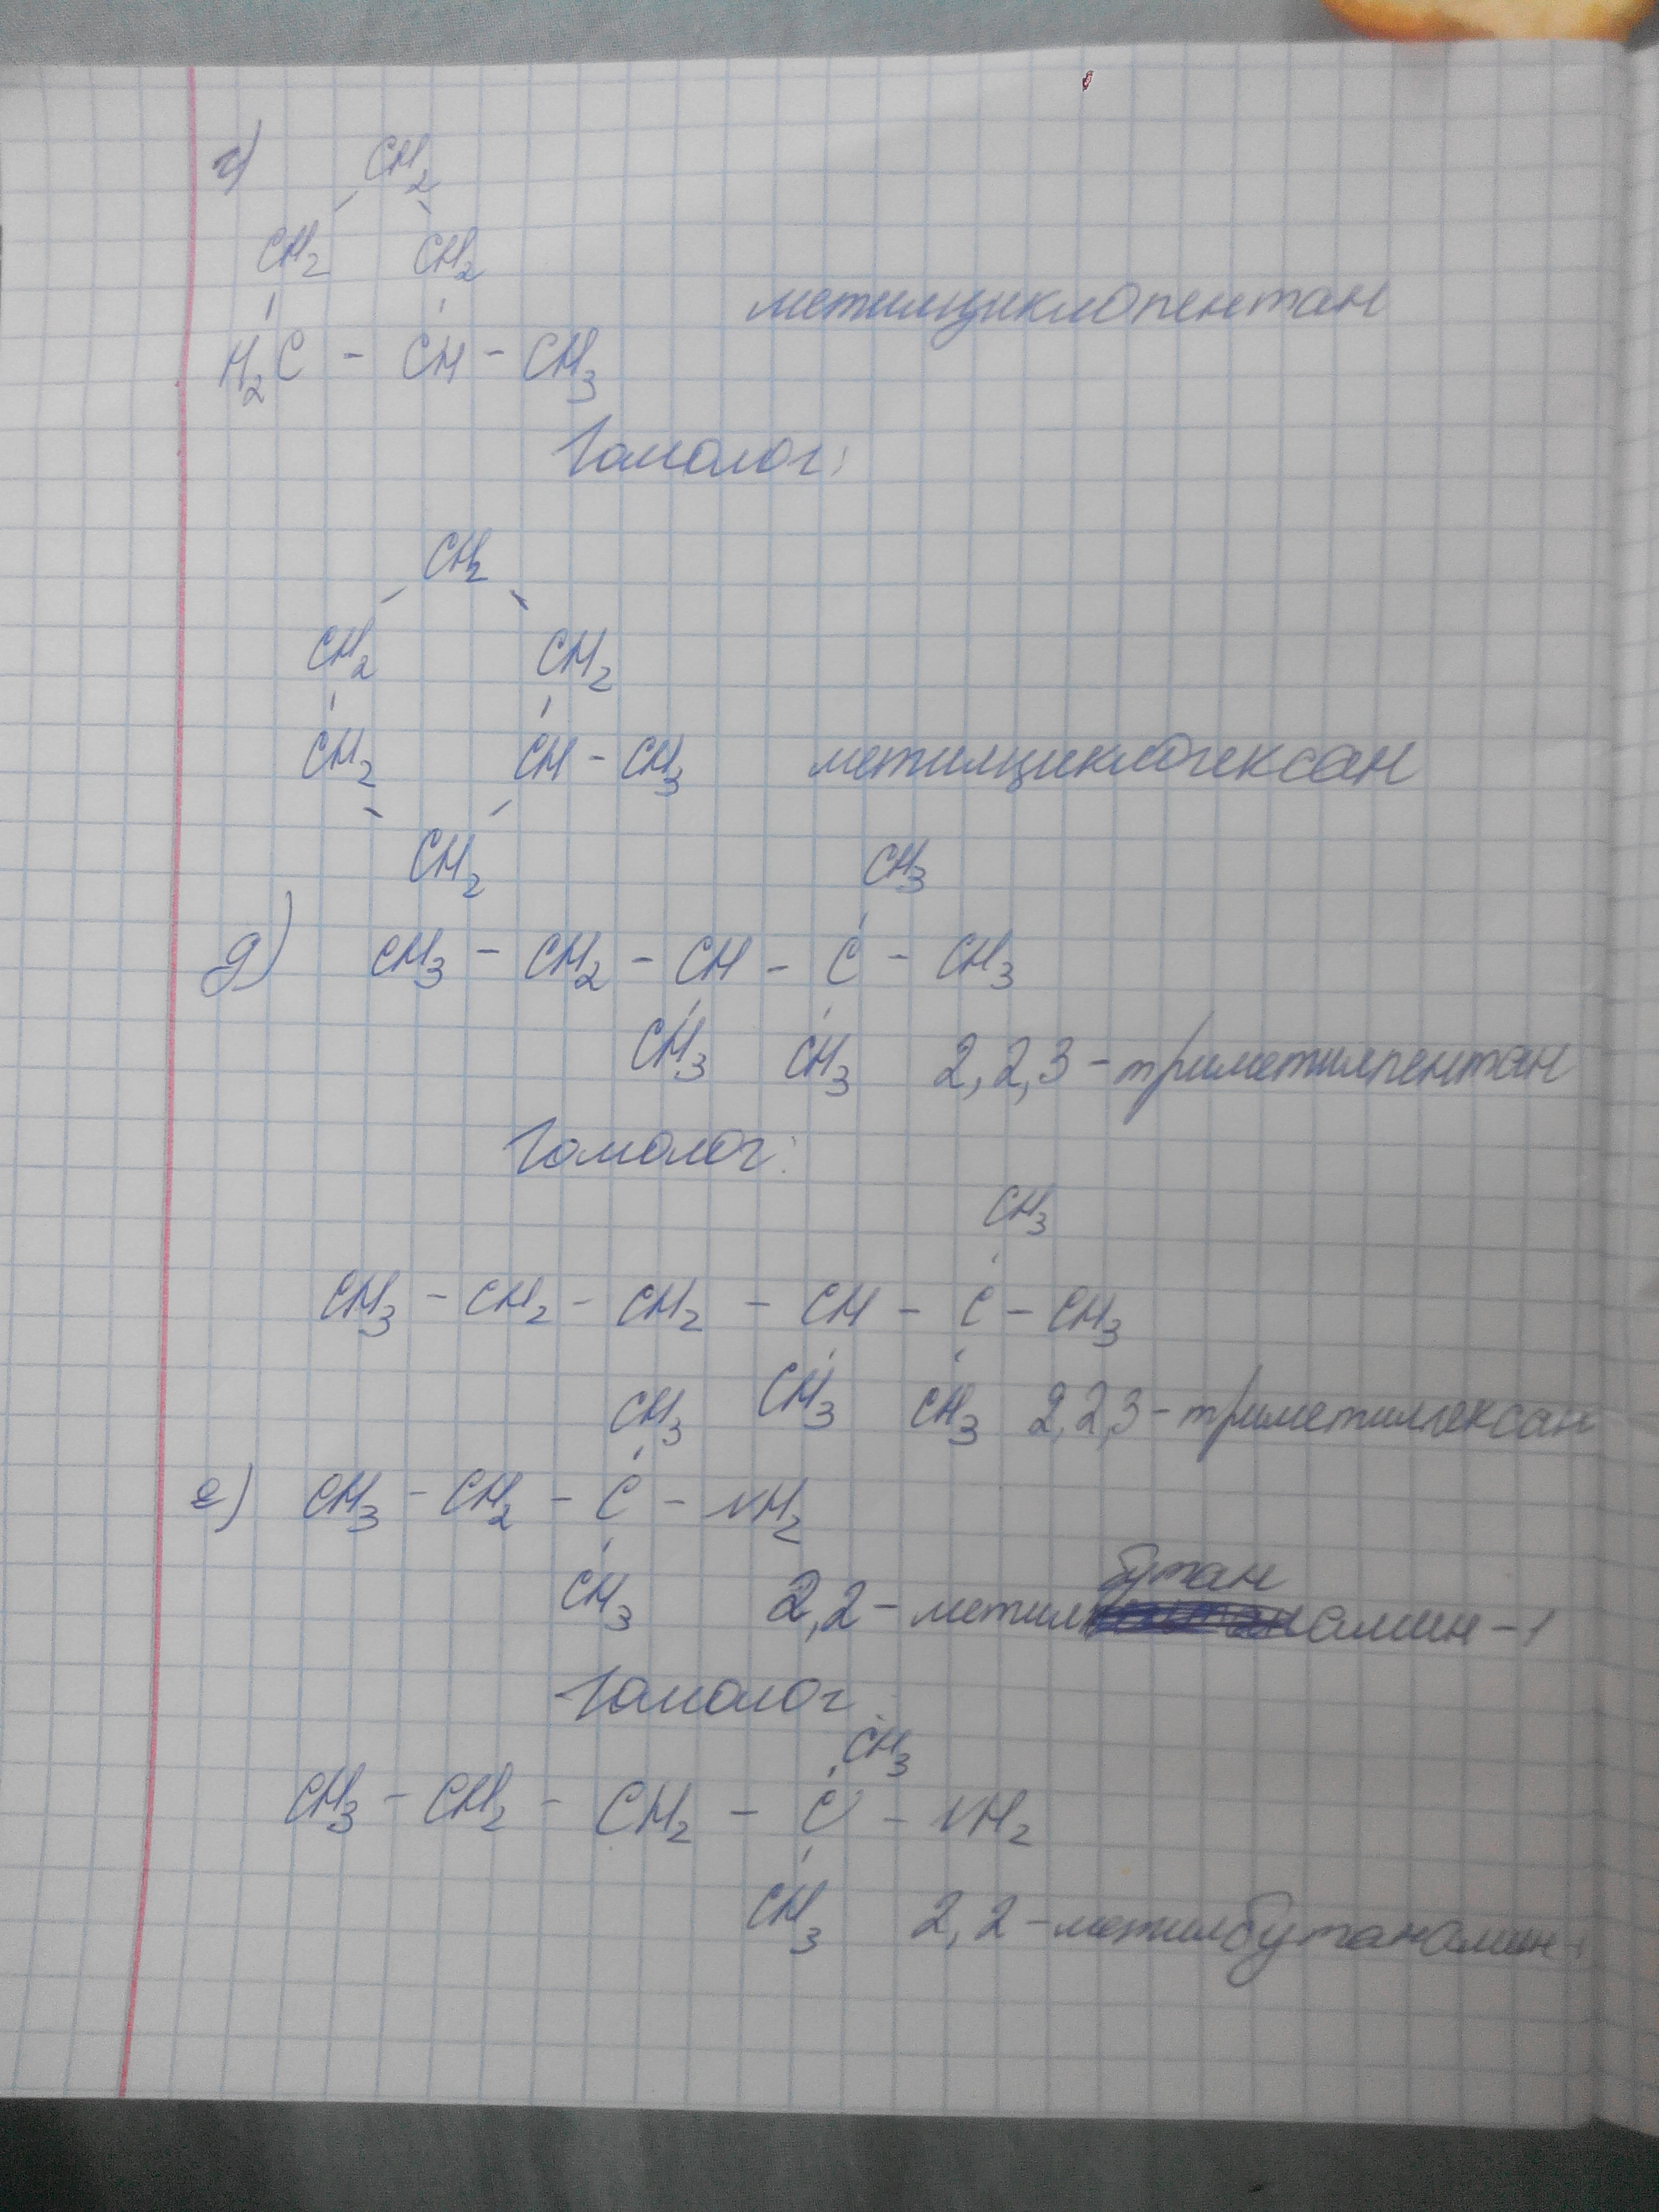 г) CH2
CH2 CH2
H2C - CH - CH3
метилциклопентан
Гомолог:
CH2
CH2 CH2
CH2 CH - CH3 метилциклогексан
CH2
CH3
д) CH3 - CH2 - CH - C - CH3
CH3 CH3 2,2,3 - триметилпентан
Гомолог:
CH3
CH3 - CH2 - CH2 - CH - C - CH3
CH3 CH3 2,2,3 - триметилгексан
CH3
е) CH3 - CH2 - C - NH2
CH3 2,2 - метилбутанамин - 1
Гомолог
CH3
CH3 - CH2 - CH2 - C - NH2
CH3 2,2 - метилбутанамин